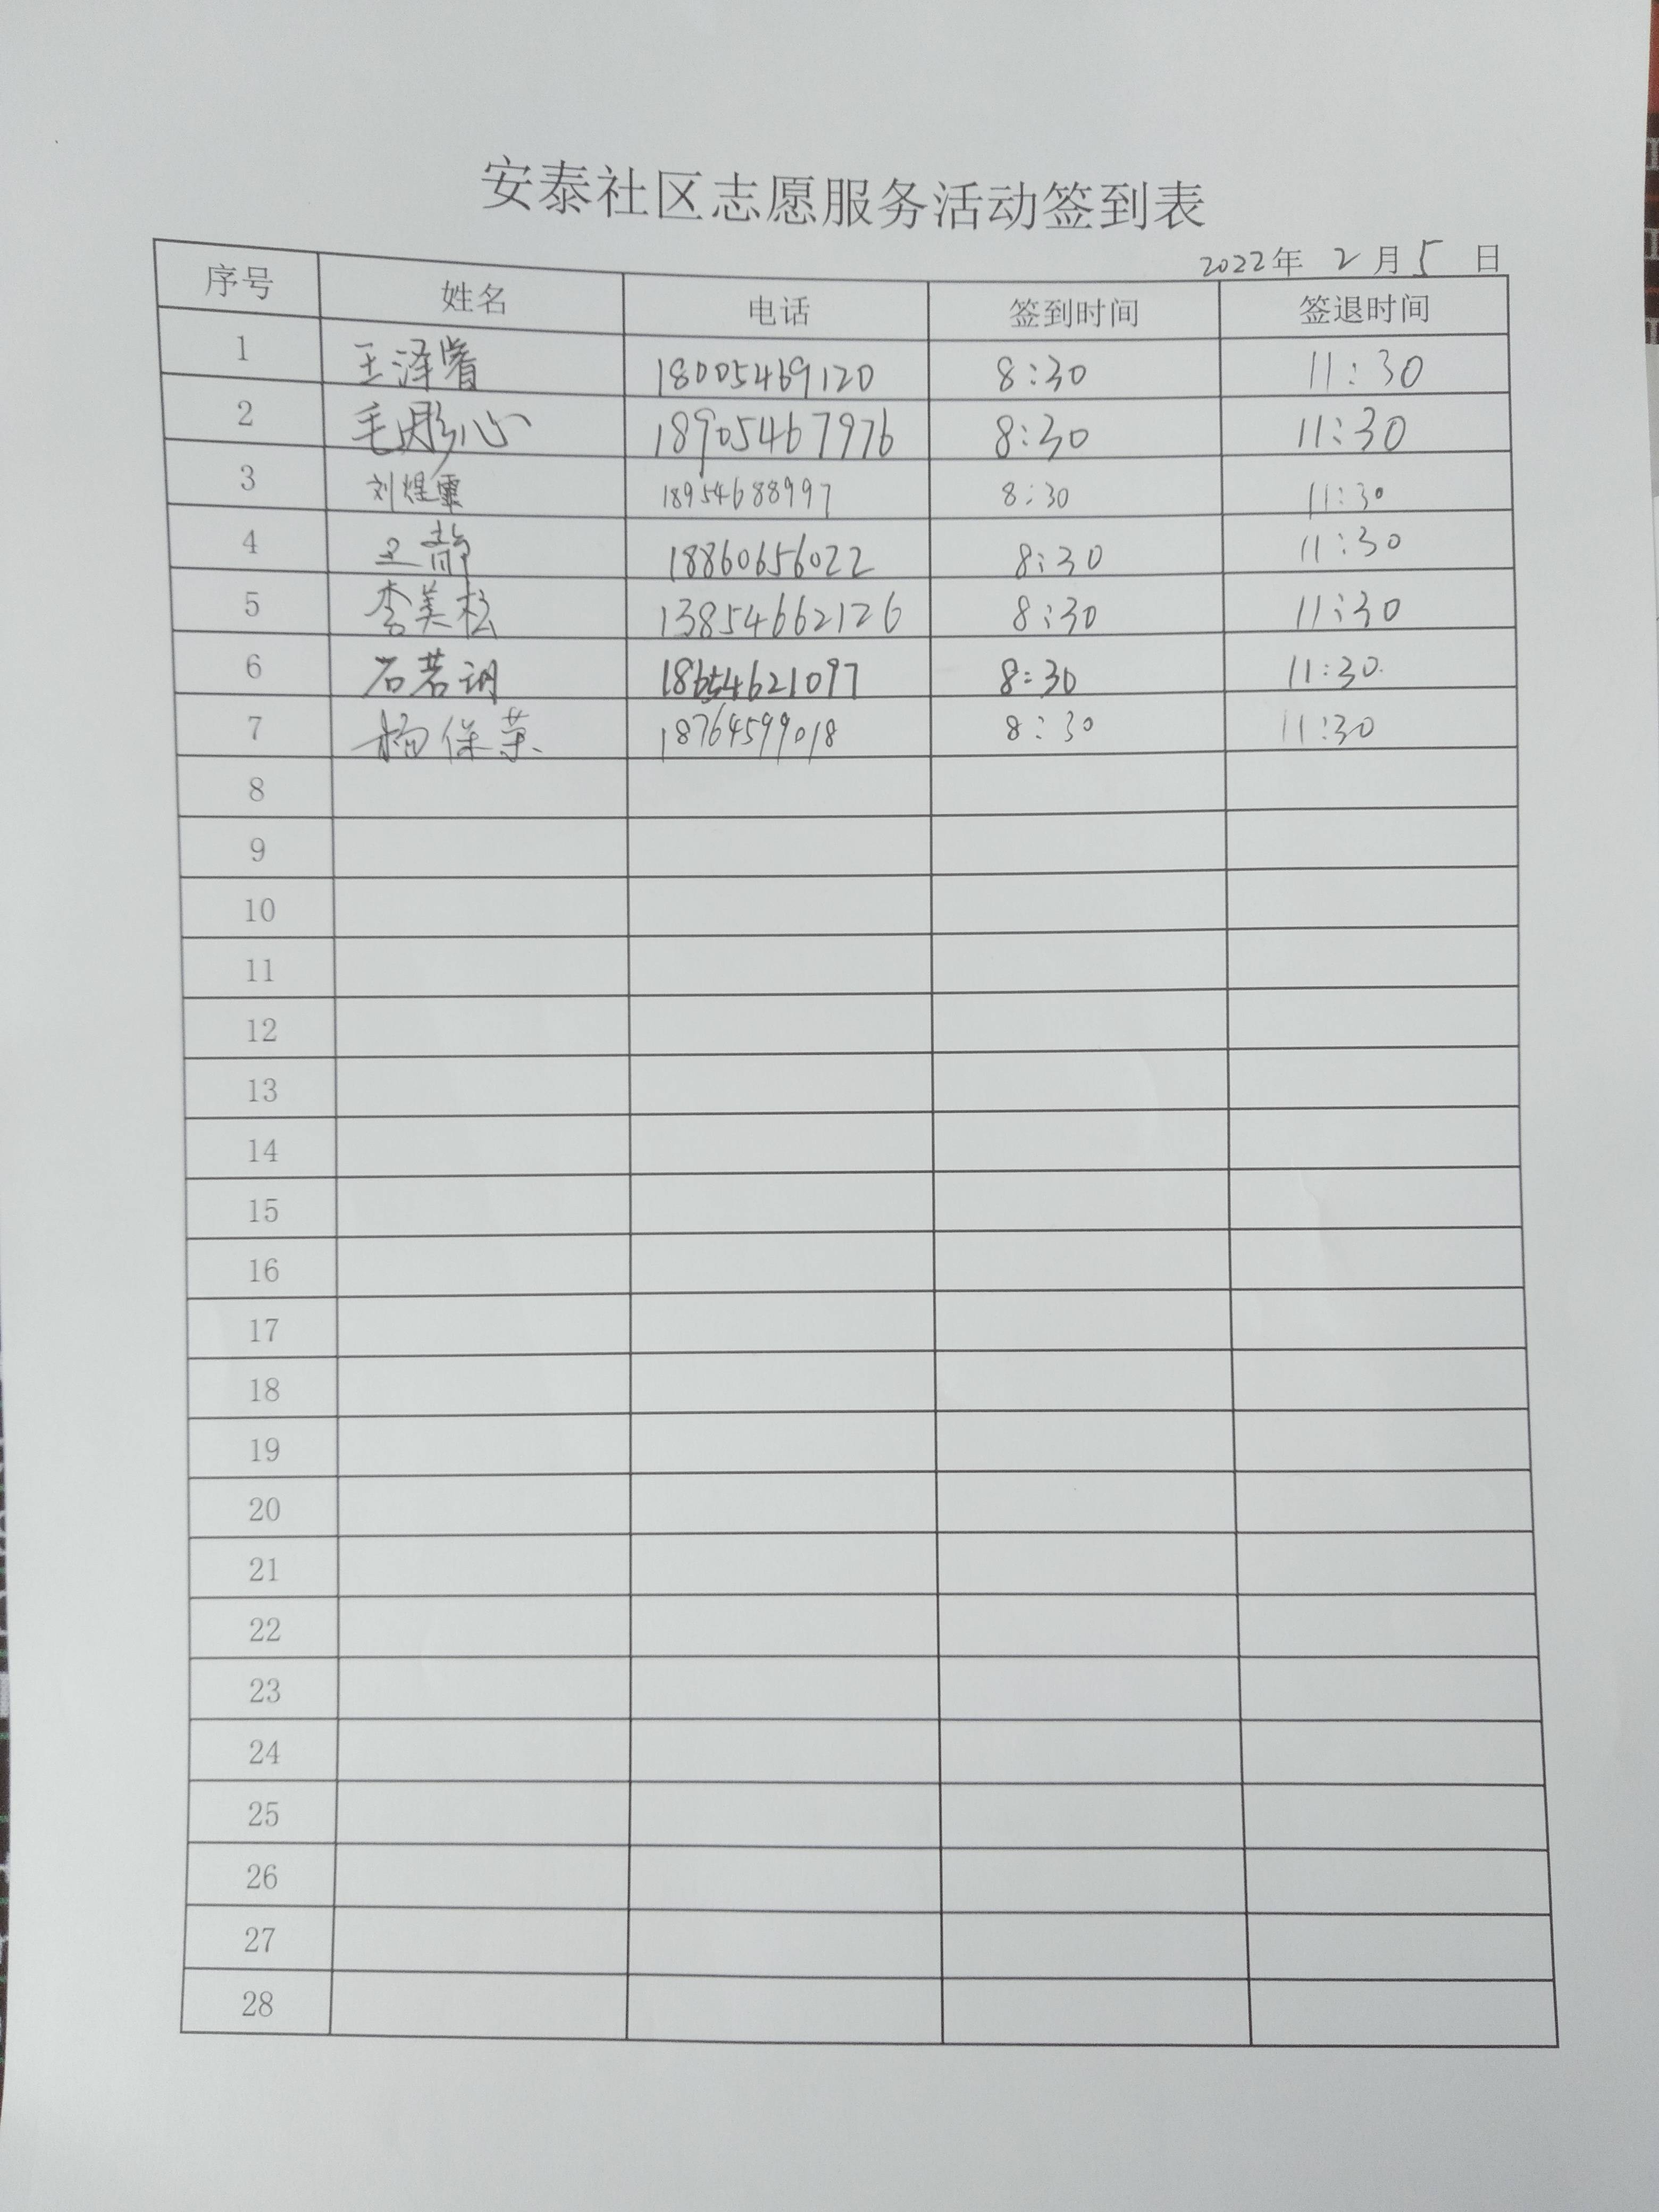 安泰社区志愿服务活动签到表
2022年 2 月 5 日
序号 姓名 电话 签到时间 签退时间
1 王泽睿 18005469120 8:30 11:30
2 毛彤心 18905467976 8:30 11:30
3 刘煜 18954688997 8:30 11:30
4 王静 18860656022 8:30 11:30
5 李美松 13854662126 8:30 11:30
6 石若 18654621097 8:30 11:30
7 杨保荣 18764599018 8:30 11:30
8
9
10
11
12
13
14
15
16
17
18
19
20
21
22
23
24
25
26
27
28